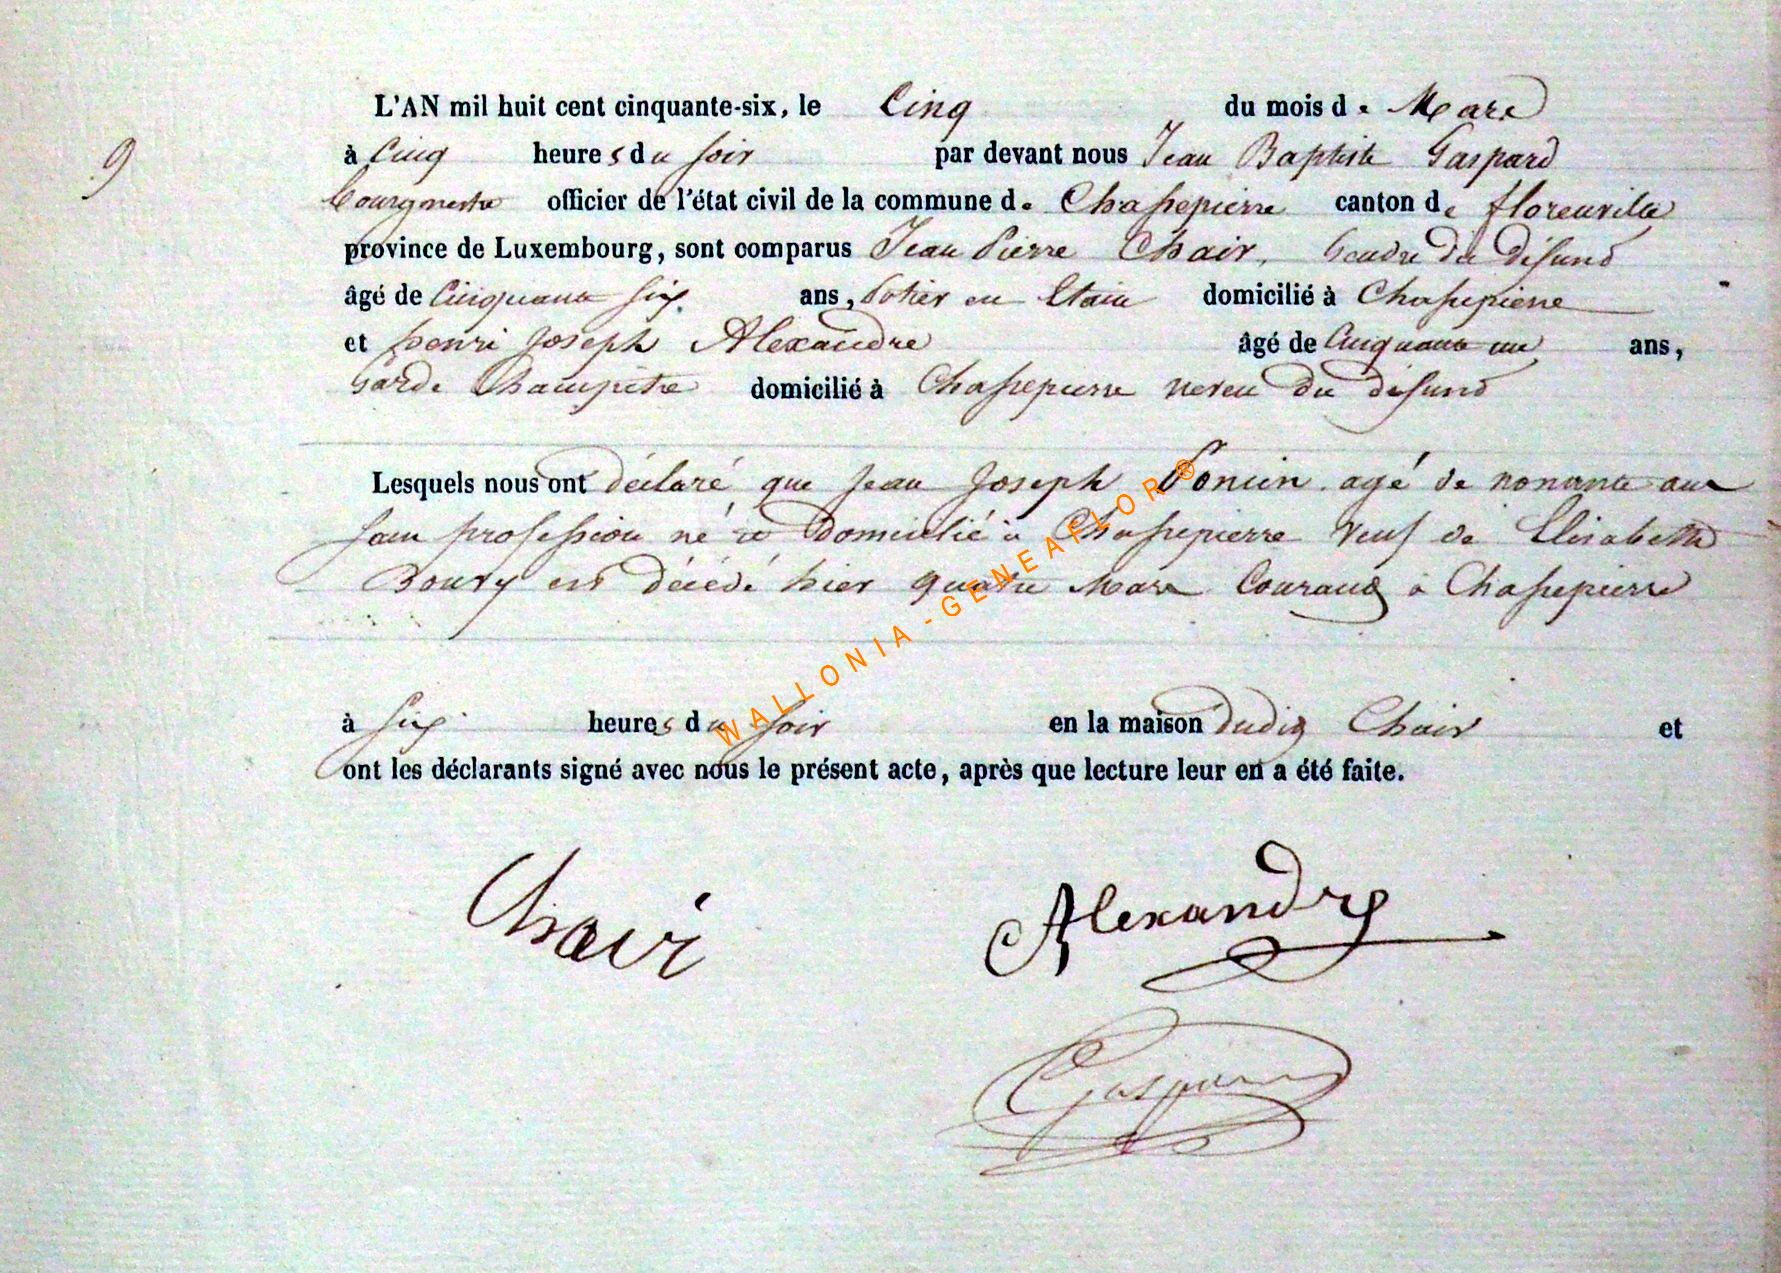 L'AN mil huit cent cinquante-six, le Cinq du mois de Mars
9
à Cinq heures du soir par devant nous Jean Baptiste Gaspard
bourgmestre officier de l'état civil de la commune de Chassepierre canton de florenville
province de Luxembourg, sont comparus Jean Pierre Chair, Gendre du défund
âgé de Cinquante six ans, Potier en Etain domicilié à Chassepierre
et henri Joseph Alexandre âgé de Cinquante un ans,
Garde Champètre domicilié à Chassepierre neveu du défund
Lesquels nous ont déclaré que Jean Joseph Poncin agé de nonante ans
sans profession né et domicilié à Chassepierre veuf de Elisabeth
Boury est décédé hier quatre Mars Courant à Chassepierre
à six heures du soir en la maison dudit Chair et
ont les déclarants signé avec nous le présent acte, après que lecture leur en a été faite.
Chair Alexandre
Gaspard
WALLONIA - GENEAFLOR®